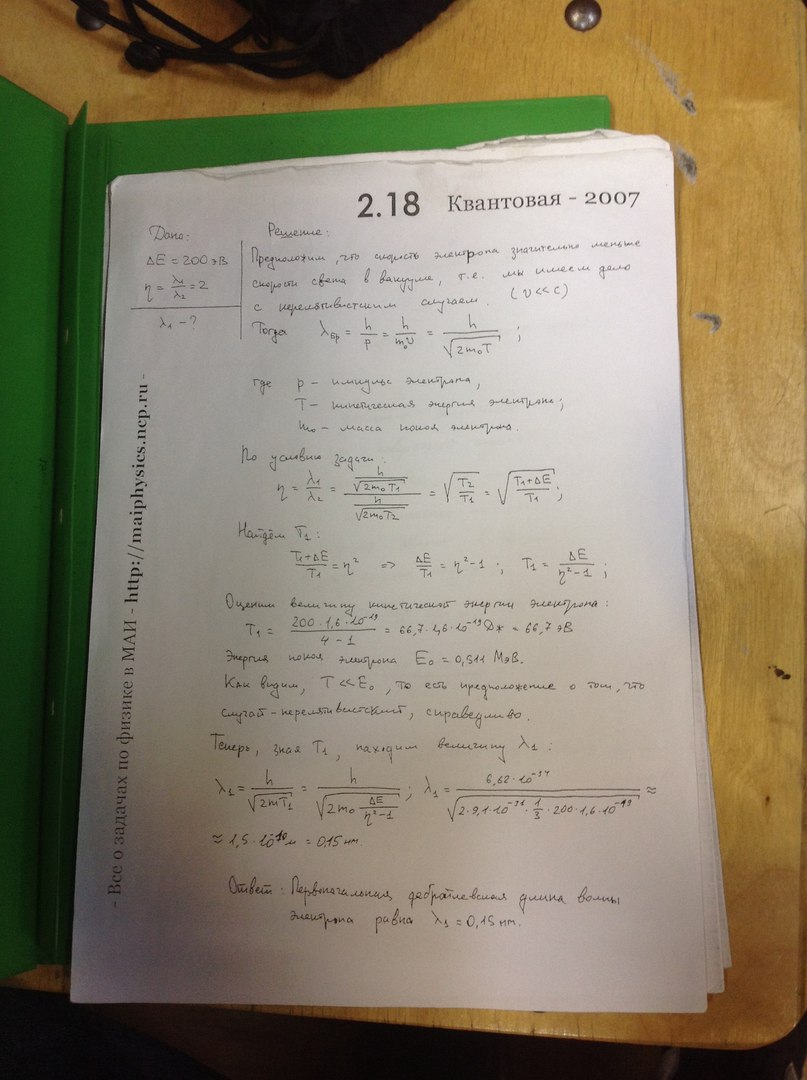 2.18 Квантовая - 2007
Дано:
ΔE = 200 эВ
η = λ₁/λ₂ = 2
λ₁ - ?
Решение:
Предположим, что скорость электрона значительно меньше
скорости света в вакууме, т.е. мы имеем дело
с нерелятивистским случаем. (v << c)
Тогда λбр = h/p = h/m₀v = h/√(2m₀T) ;
где p - импульс электрона,
T - кинетическая энергия электрона;
m₀ - масса покоя электрона.
По условию задачи:
η = λ₁/λ₂ = (h/√(2m₀T₁))/(h/√(2m₀T₂)) = √(T₂/T₁) = √((T₁+ΔE)/T₁) ;
Найдём T₁:
(T₁+ΔE)/T₁ = η² => ΔE/T₁ = η²-1 ; T₁ = ΔE/(η²-1) ;
Оценим величину кинетической энергии электрона:
T₁ = (200·1,6·10⁻¹⁹)/(4-1) = 66,7·1,6·10⁻¹⁹ Дж = 66,7 эВ
Энергия покоя электрона E₀ = 0,511 МэВ.
Как видим, T << E₀, то есть предположение о том, что
случай - нерелятивистский, справедливо.
Теперь, зная T₁, находим величину λ₁ :
λ₁ = h/√(2mT₁) = h/√(2m₀ ΔE/(η²-1)) ; λ₁ = 6,62·10⁻³⁴/√(2·9,1·10⁻³¹·1/3·200·1,6·10⁻¹⁹) ≈
≈ 1,5·10⁻¹⁰ м = 0,15 нм.
Ответ: Первоначальная дебройлевская длина волны
электрона равна λ₁ = 0,15 нм.
- Все о задачах по физике в МАИ - http://maiphysics.ncp.ru -